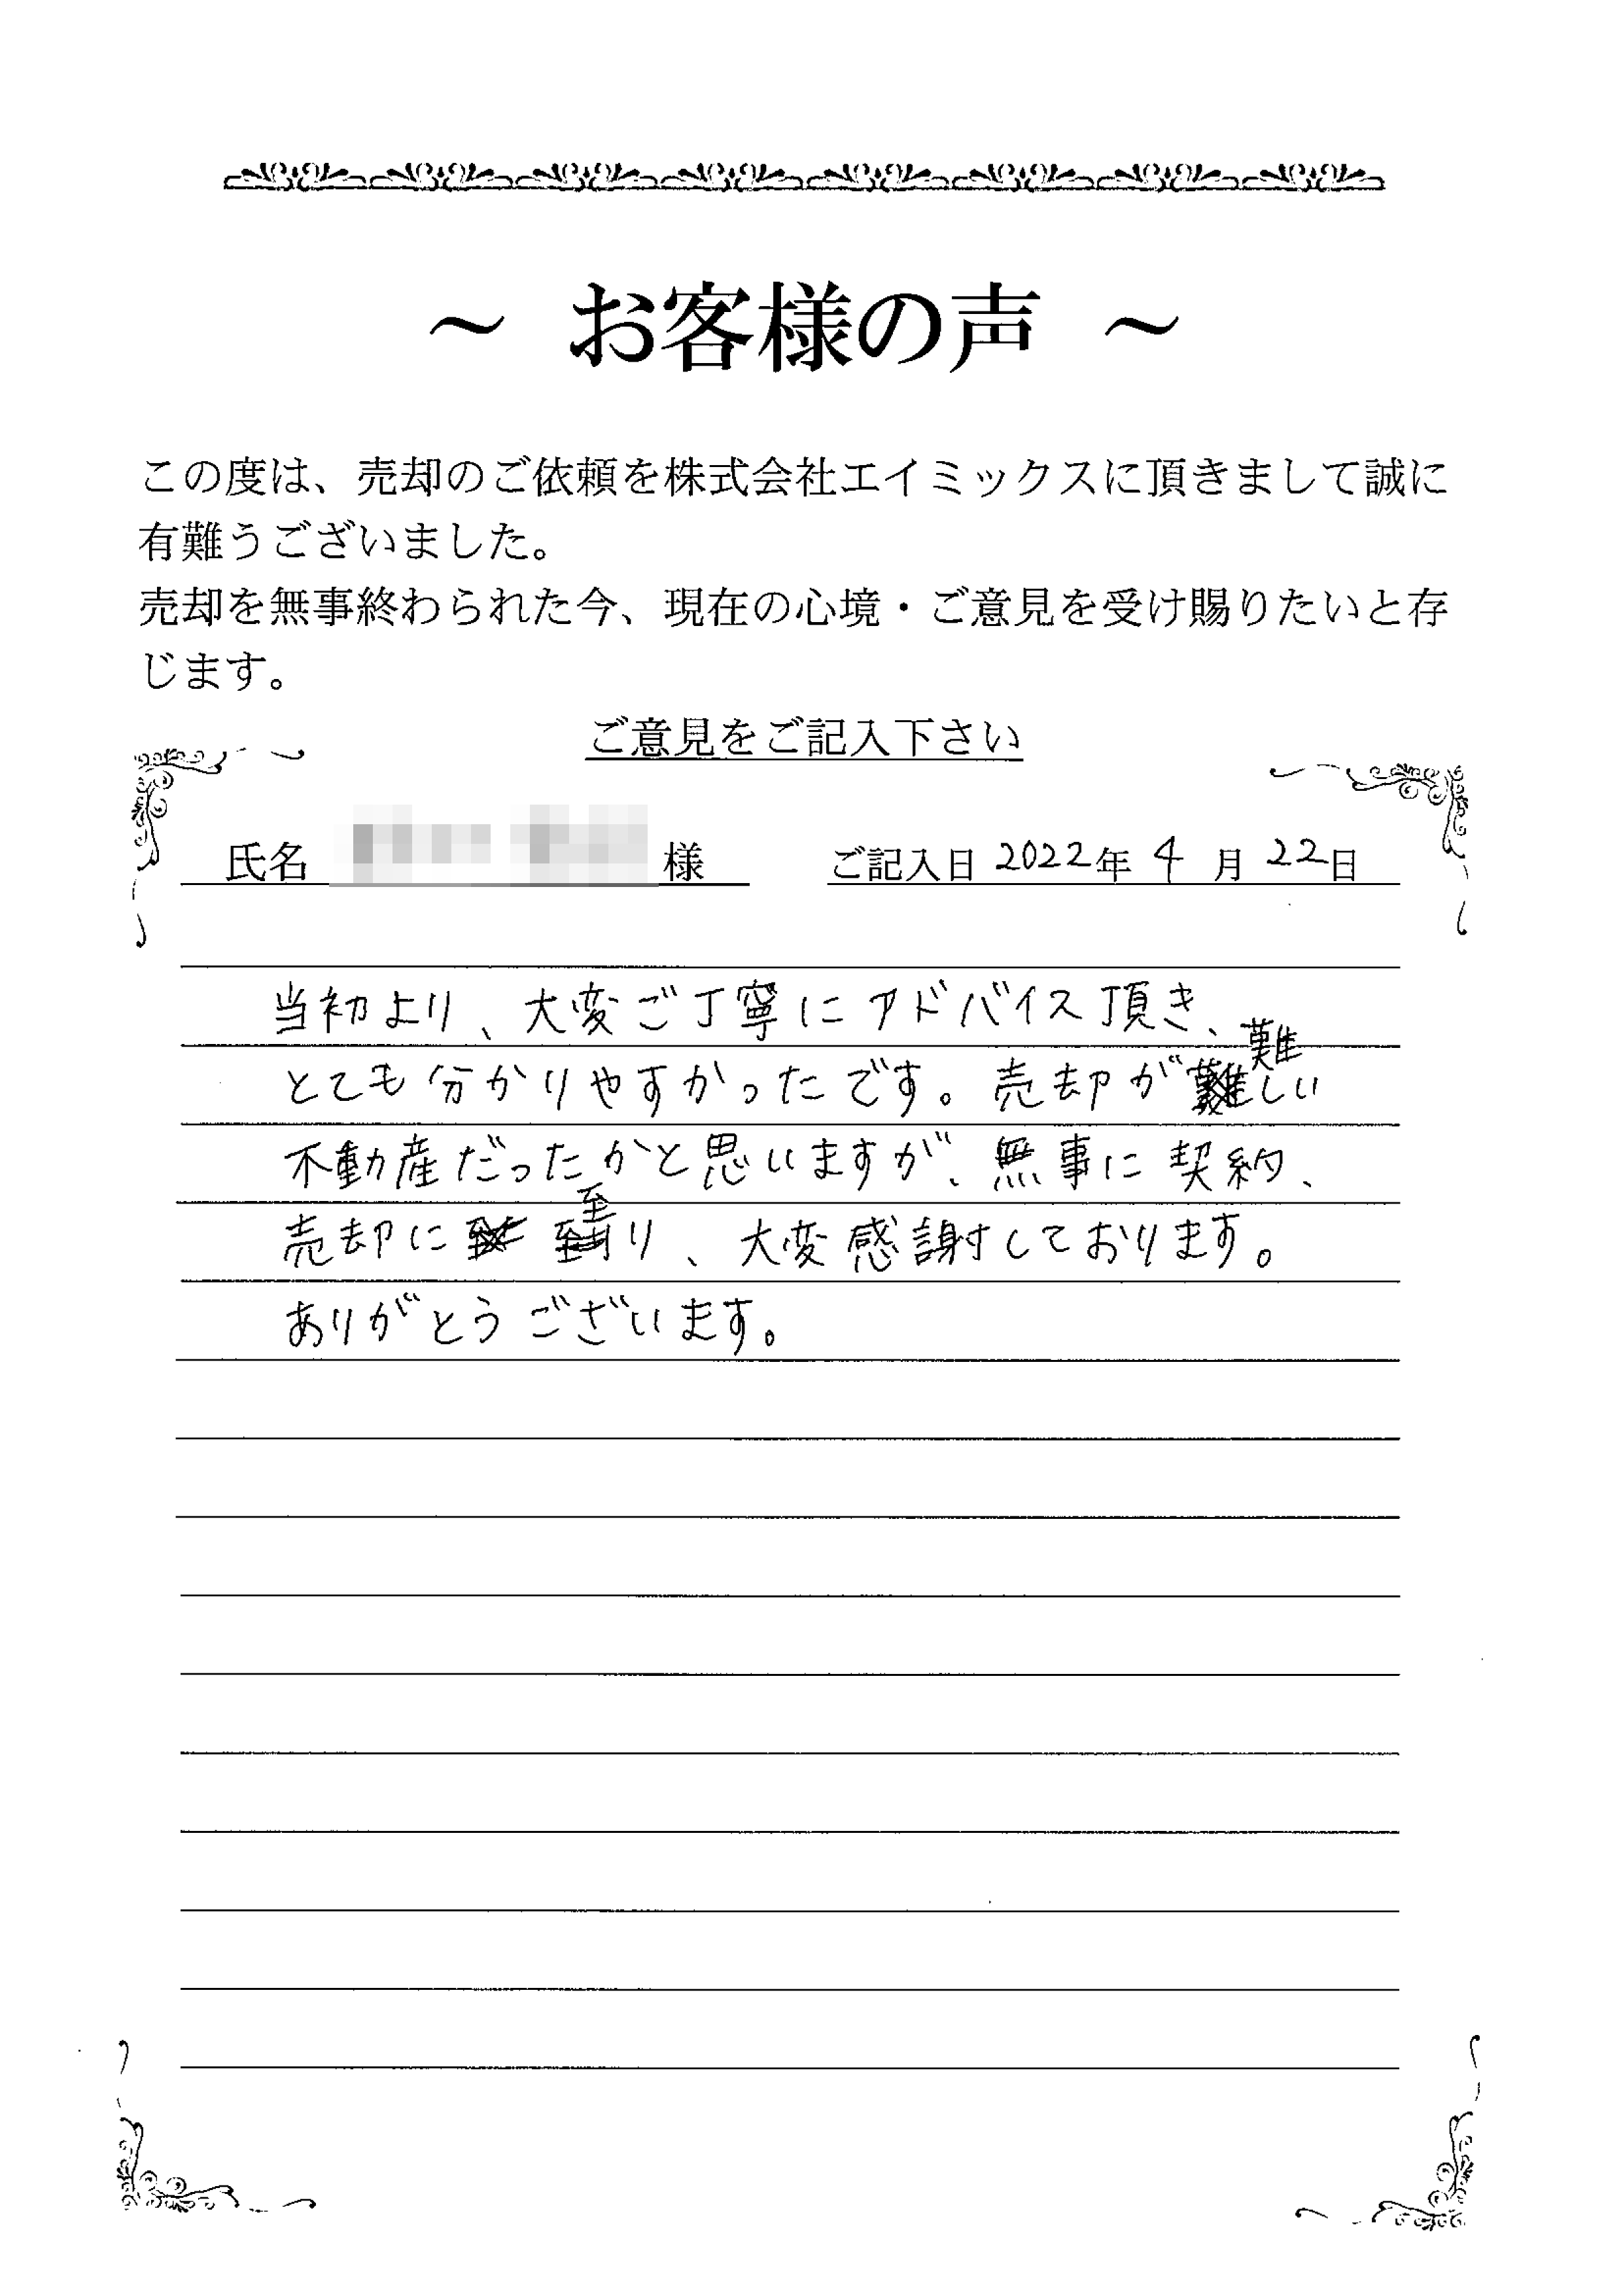 ～ お客様の声 ～
この度は、売却のご依頼を株式会社エイミックスに頂きまして誠に
有難うございました。
売却を無事終わられた今、現在の心境・ご意見を受け賜りたいと存
じます。
ご意見をご記入下さい
氏名 様 ご記入日 2022年 4 月 22日
当初より、大変ご丁寧にアドバイス頂き、
とても分かりやすかったです。売却が難しい
不動産だったかと思いますが、無事に契約、
売却に至り、大変感謝しております。
ありがとうございます。